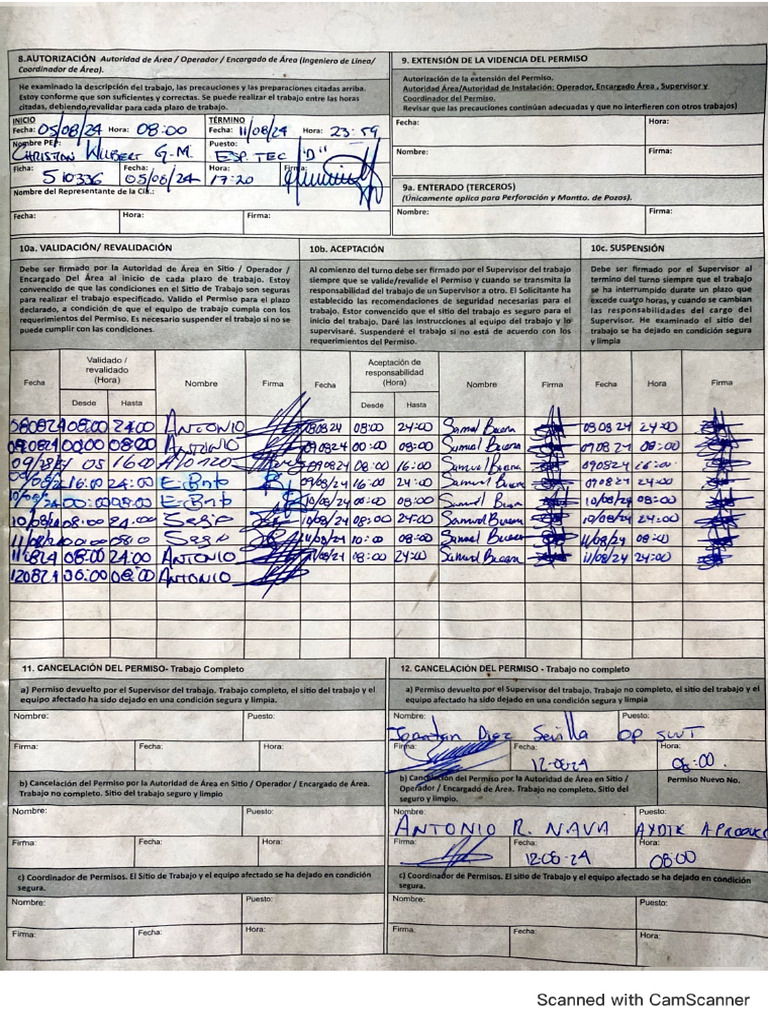 8.AUTORIZACIÓN Autoridad de Área / Operador / Encargado de Área (Ingeniero de Linea/ Coordinador de Área).
He examinado la descripción del trabajo, las precauciones y las preparaciones citadas arriba. Estoy conforme que son suficientes y correctas. Se puede realizar el trabajo entre las horas citadas, debiendo revalidar para cada plazo de trabajo.
INICIO TÉRMINO
Fecha: 05/08/24 Hora: 08:00 Fecha: 11/08/24 Hora: 23:59
Nombre PEP: CHRISTIAN WILBERT G.M. Puesto: ESP. TEC "D"
Ficha: 510336 Fecha: 05/08/24 Hora: 17:20 Firma:
Nombre del Representante de la Cía.:
Fecha: Hora: Firma:
9. EXTENSIÓN DE LA VIDENCIA DEL PERMISO
Autorización de la extensión del Permiso.
Autoridad Área/Autoridad de Instalación: Operador, Encargado Área , Supervisor y Coordinador del Permiso.
Revisar que las precauciones continúan adecuadas y que no interfieren con otros trabajos)
Fecha: Hora:
Nombre: Firma:
9a. ENTERADO (TERCEROS)
(Únicamente aplica para Perforación y Mantto. de Pozos).
Nombre: Firma:
10a. VALIDACIÓN/ REVALIDACIÓN
Debe ser firmado por la Autoridad de Área en Sitio / Operador / Encargado Del Área al inicio de cada plazo de trabajo. Estoy convencido de que las condiciones en el Sitio de Trabajo son seguras para realizar el trabajo especificado. Valido el Permiso para el plazo declarado, a condición de que el equipo de trabajo cumpla con los requerimientos del Permiso. Es necesario suspender el trabajo si no se puede cumplir con las condiciones.
10b. ACEPTACIÓN
Al comienzo del turno debe ser firmado por el Supervisor del trabajo siempre que se valide/revalide el Permiso y cuando se transmita la responsabilidad del trabajo de un Supervisor a otro. El Solicitante ha establecido las recomendaciones de seguridad necesarias para el trabajo. Estor convencido que el sitio es seguro para el inicio del trabajo. Daré las instrucciones al equipo del trabajo y lo supervisaré. Suspenderé el trabajo si no está de acuerdo con los requerimientos del Permiso.
10c. SUSPENSIÓN
Debe ser firmado por el Supervisor al termino del turno siempre que el trabajo se ha interrumpido durante un plazo que excede cuatro horas, y cuando se cambian las responsabilidades del cargo del Supervisor. He examinado el sitio del trabajo se ha dejado en condición segura y limpia
Fecha Validado / revalidado (Hora) Desde Hasta Nombre Firma Fecha Aceptación de responsabilidad (Hora) Desde Hasta Nombre Firma Fecha Hora Firma
080824 08:00 24:00 ANTONIO 080824 08:00 24:00 Samuel Buena 080824 24:00
090824 00:00 08:00 ANTONIO 090824 00:00 08:00 Samuel Buena 090824 08:00
16:00 090824 08:00 16:00 Samuel Buena 090824 16:00
16:00 24:00 09/08/24 16:00 24:00 Samuel Buena 090824 24:00
00:00 08:00 10/08/24 00:00 08:00 Samuel Buena 10/08/24 08:00
10/08/24 08:00 24:00 10/08/24 08:00 24:00 Samuel Buena 10/08/24 24:00
08:00 Samuel Buena 11/08/24 08:00
110824 08:00 24:00 ANTONIO 11/08/24 08:00 24:00 Samuel Buena 11/08/24 24:00
120824 00:00 08:00 ANTONIO
11. CANCELACIÓN DEL PERMISO- Trabajo Completo
a) Permiso devuelto por el Supervisor del trabajo. Trabajo completo, el sitio del trabajo y el equipo afectado ha sido dejado en una condición segura y limpia.
Nombre: Puesto:
Firma: Fecha: Hora:
b) Cancelación del Permiso por la Autoridad de Área en Sitio / Operador / Encargado de Área. Trabajo no completo. Sitio del trabajo seguro y limpio
Nombre: Puesto:
Firma: Fecha: Hora:
c) Coordinador de Permisos. El Sitio de Trabajo y el equipo afectado se ha dejado en condición segura.
Nombre: Puesto:
Firma: Fecha: Hora:
12. CANCELACIÓN DEL PERMISO - Trabajo no completo
a) Permiso devuelto por el Supervisor del trabajo. Trabajo no completo, el sitio del trabajo y el equipo afectado ha sido dejado en una condición segura y limpia
Nombre: Jonatan Diaz Sevilla Puesto: OP
Firma: Fecha: 12-08-24 Hora: 08:00.
b) Cancelación del Permiso por la Autoridad de Área en Sitio / Operador / Encargado de Área. Trabajo no completo. Sitio del seguro y limpio. Permiso Nuevo No.
Nombre: ANTONIO R. NAVA Puesto:
Firma: Fecha: 12-08-24 Hora: 08:00
c) Coordinador de Permisos. El sitio de Trabajo y el equipo afectado se ha dejado en condición segura.
Nombre: Puesto:
Firma: Fecha: Hora:
Scanned with CamScanner